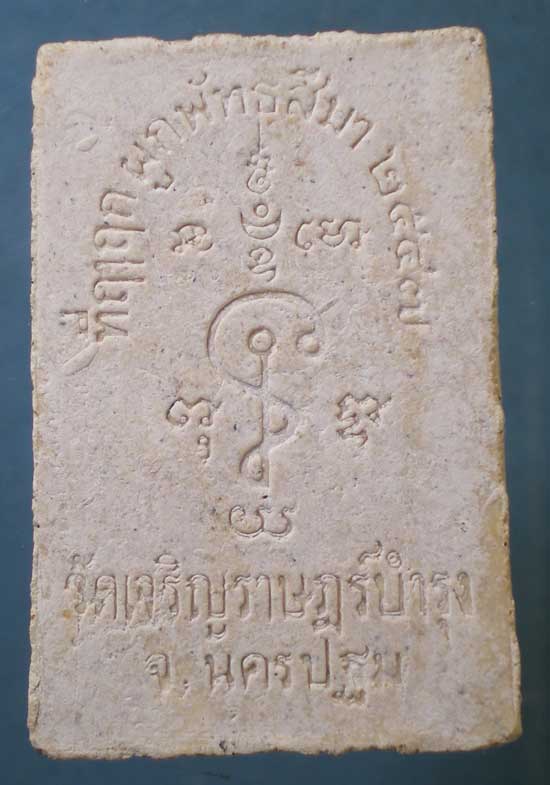 ที่ฤฤก ผูกพัทธสีมา ๒๕๔๗
วัดเจริญราษฎร์บำรุง
จ. นครปฐม